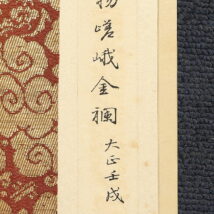 物嵯峨金襴 大正壬戌